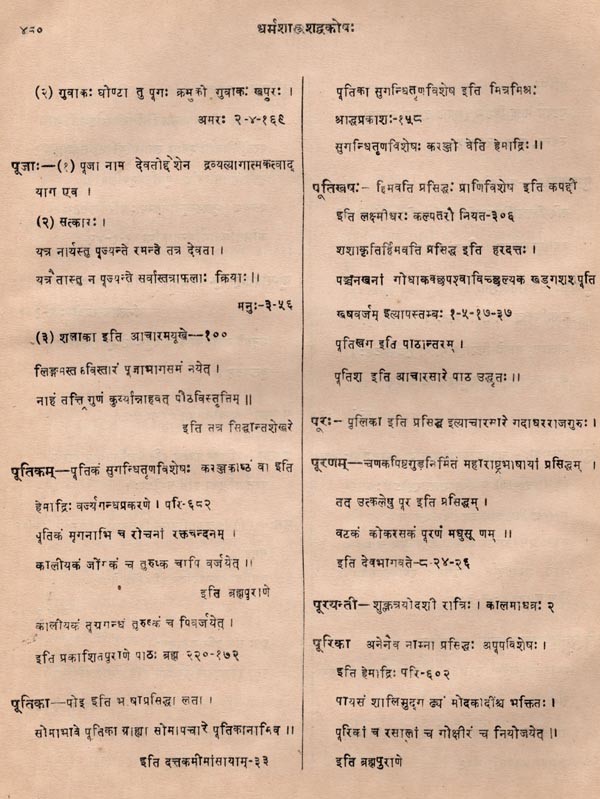 ४८०
धर्मशास्त्रशब्दकोषः
(२) गुवाकः घोण्टा तु पूगः क्रमुको गुवाकः खपुरः ।
अमरः २-४-१६९
पूजाः—(१) पूजा नाम देवतोद्देशेन द्रव्यत्यागात्मकत्वाद्
याग एव ।
(२) सत्कारः ।
यत्र नार्यस्तु पूज्यन्ते रमन्ते तत्र देवता ।
यत्रैतास्तु न पूज्यन्ते सर्वास्तत्राफलाः क्रियाः ॥
मनुः—३-५६
(३) शलाका इति आचारमयूखे—१००
लिङ्गमस्त विस्तारं पूजाभागसमं नयेत् ।
नाहं तत्त्रिगुणं कुर्य्यान्नाहवत् पीठविस्तृतिम् ॥
इति तत्र सिद्धान्तशेखरे
पूतिकम्—पूतिकं सुगन्धितृणविशेषः करञ्जकाष्ठं वा इति
हेमाद्रिः वर्ज्यगन्धप्रकरणे । परि-६८२
पूतिकं मृगनाभि च रोचनां रक्तचन्दनम् ।
कालीयकं जोंगकं च तुरुष्कं चापि वर्जयेत् ।
इति ब्रह्मपुराणे
कालीयकं तुग्रगन्धं तुरुष्कं च पिवर्जयेत् ।
इति प्रकाशितपुराणे पाठः ब्रह्म २२०-१७२
पूतिका—पोइ इति भाषाप्रसिद्धा लता ।
सोमाभावे पूतिका ग्राह्या सोमापचारे पूतिकानामिव ॥
इति दत्तकमीमांसायाम्-३३
पूतिका सुगन्धितृणविशेष इति मित्रमिश्रः
श्राद्धप्रकाशः-१५८
सुगन्धितृणविशेषः करञ्जो वेति हेमाद्रिः ॥
पूतिखषः- हिमवति प्रसिद्धः प्राणिविशेष इति कपर्दी
इति लक्ष्मीधरः कल्पतरौ नियत-३०६
शशाकृतिर्हिमवति प्रसिद्ध इति हरदत्तः ।
पञ्चनखानां गोधाकच्छपश्वाविच्छल्यक खड्गशश पूति
खषवर्जम् इत्यापस्तम्बः १-५-१७-३७
पूतिखग इति पाठान्तरम् ।
पूतिश इति आचारसारे पाठ उद्धृतः ॥
पूरः- पूलिका इति प्रसिद्ध इत्याचारसारे गदाधरराजगुरुः ।
पूरणम्—चणकपिष्टगुडनिर्मितं महाराष्ट्रभाषायां प्रसिद्धम् ।
तत् उत्कलेषु पूर इति प्रसिद्धम् ।
वटकं कोकरसकं पूरणं मधुसू णम् ॥
इति देवभागवते-८-२४-२६
पूरयन्ती—शुक्लत्रयोदशी रात्रिः । कालमाधवः २
पूरिका अनेनैव नाम्ना प्रसिद्धः अपूपविशेषः ।
इति हेमाद्रिः परि-६०२
पायसं शालिमुद्ग ढ्यं मोदकादींश्च भक्तितः ।
पूरिकां च रसालां च गोक्षीरं च नियोजयेत् ॥
इति ब्रह्मपुराणे